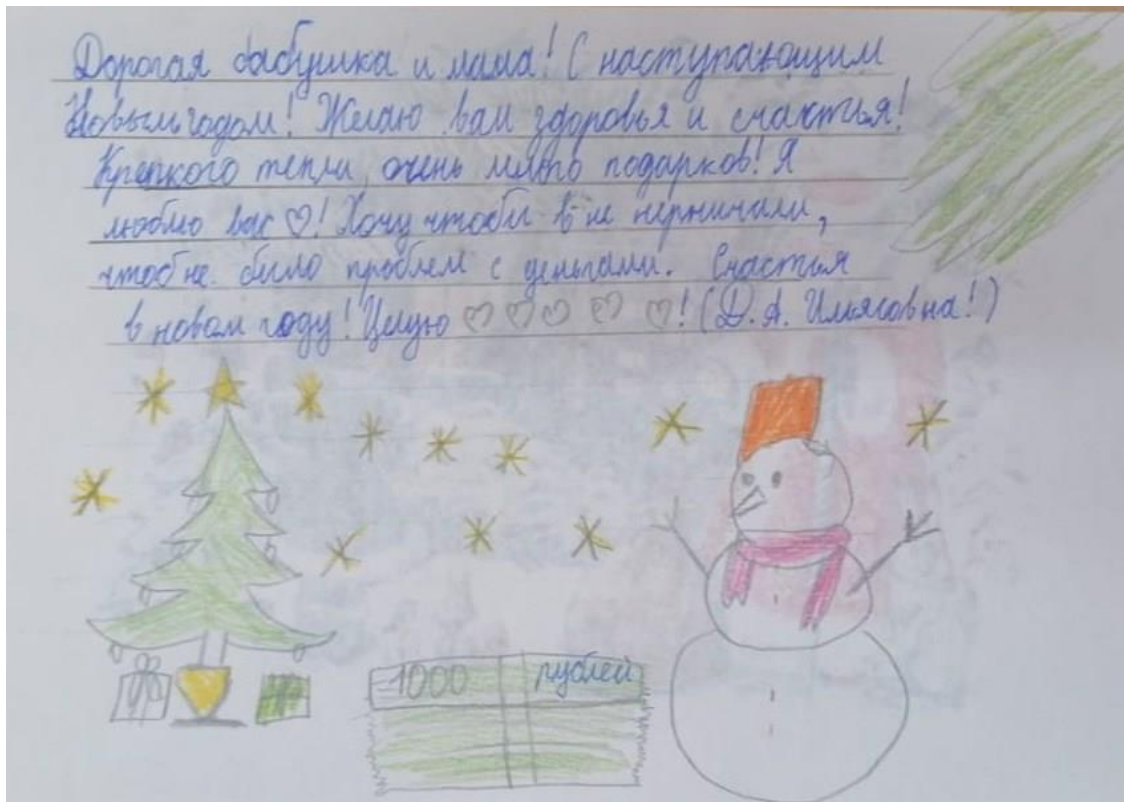 Дорогая бабушка и мама! С наступающим
Новым годом! Желаю вам здоровья и счастья!
Крепкого тепла, очень много подарков! Я
люблю вас ♡! Хочу чтобы в не нернничали,
чтоб не было проблем с деньгами. Счастья
в новом году! Целую ♡♡♡ ♡ ♡! (Д. А. Ильясовна!)
1000 рублей